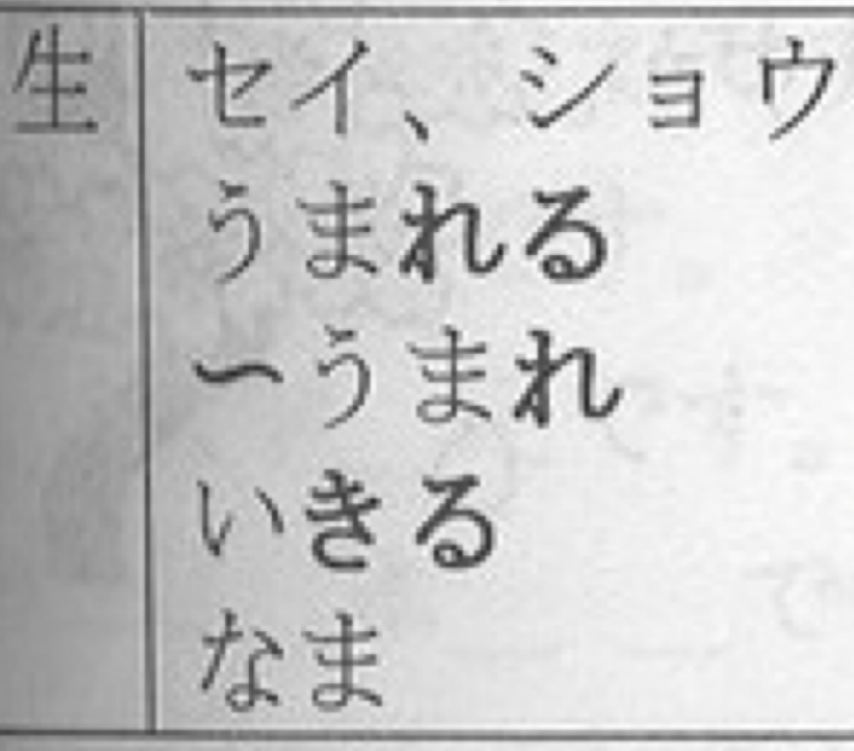 生 セイ、ショウ
うまれる
〜うまれ
いきる
なま